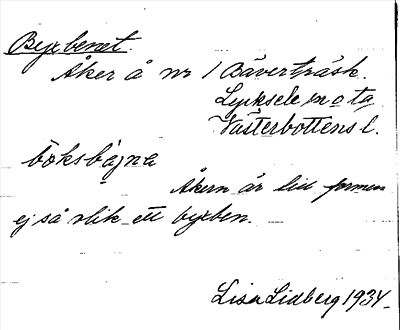 Byxbenet.
Åker å nr 1 Bäverträsk.
Lycksele sn o ta
Västerbottens l.
bòksbạjna
Åkern är till formen
ej så olik ett byxben.
Lisa Lidberg 1934.